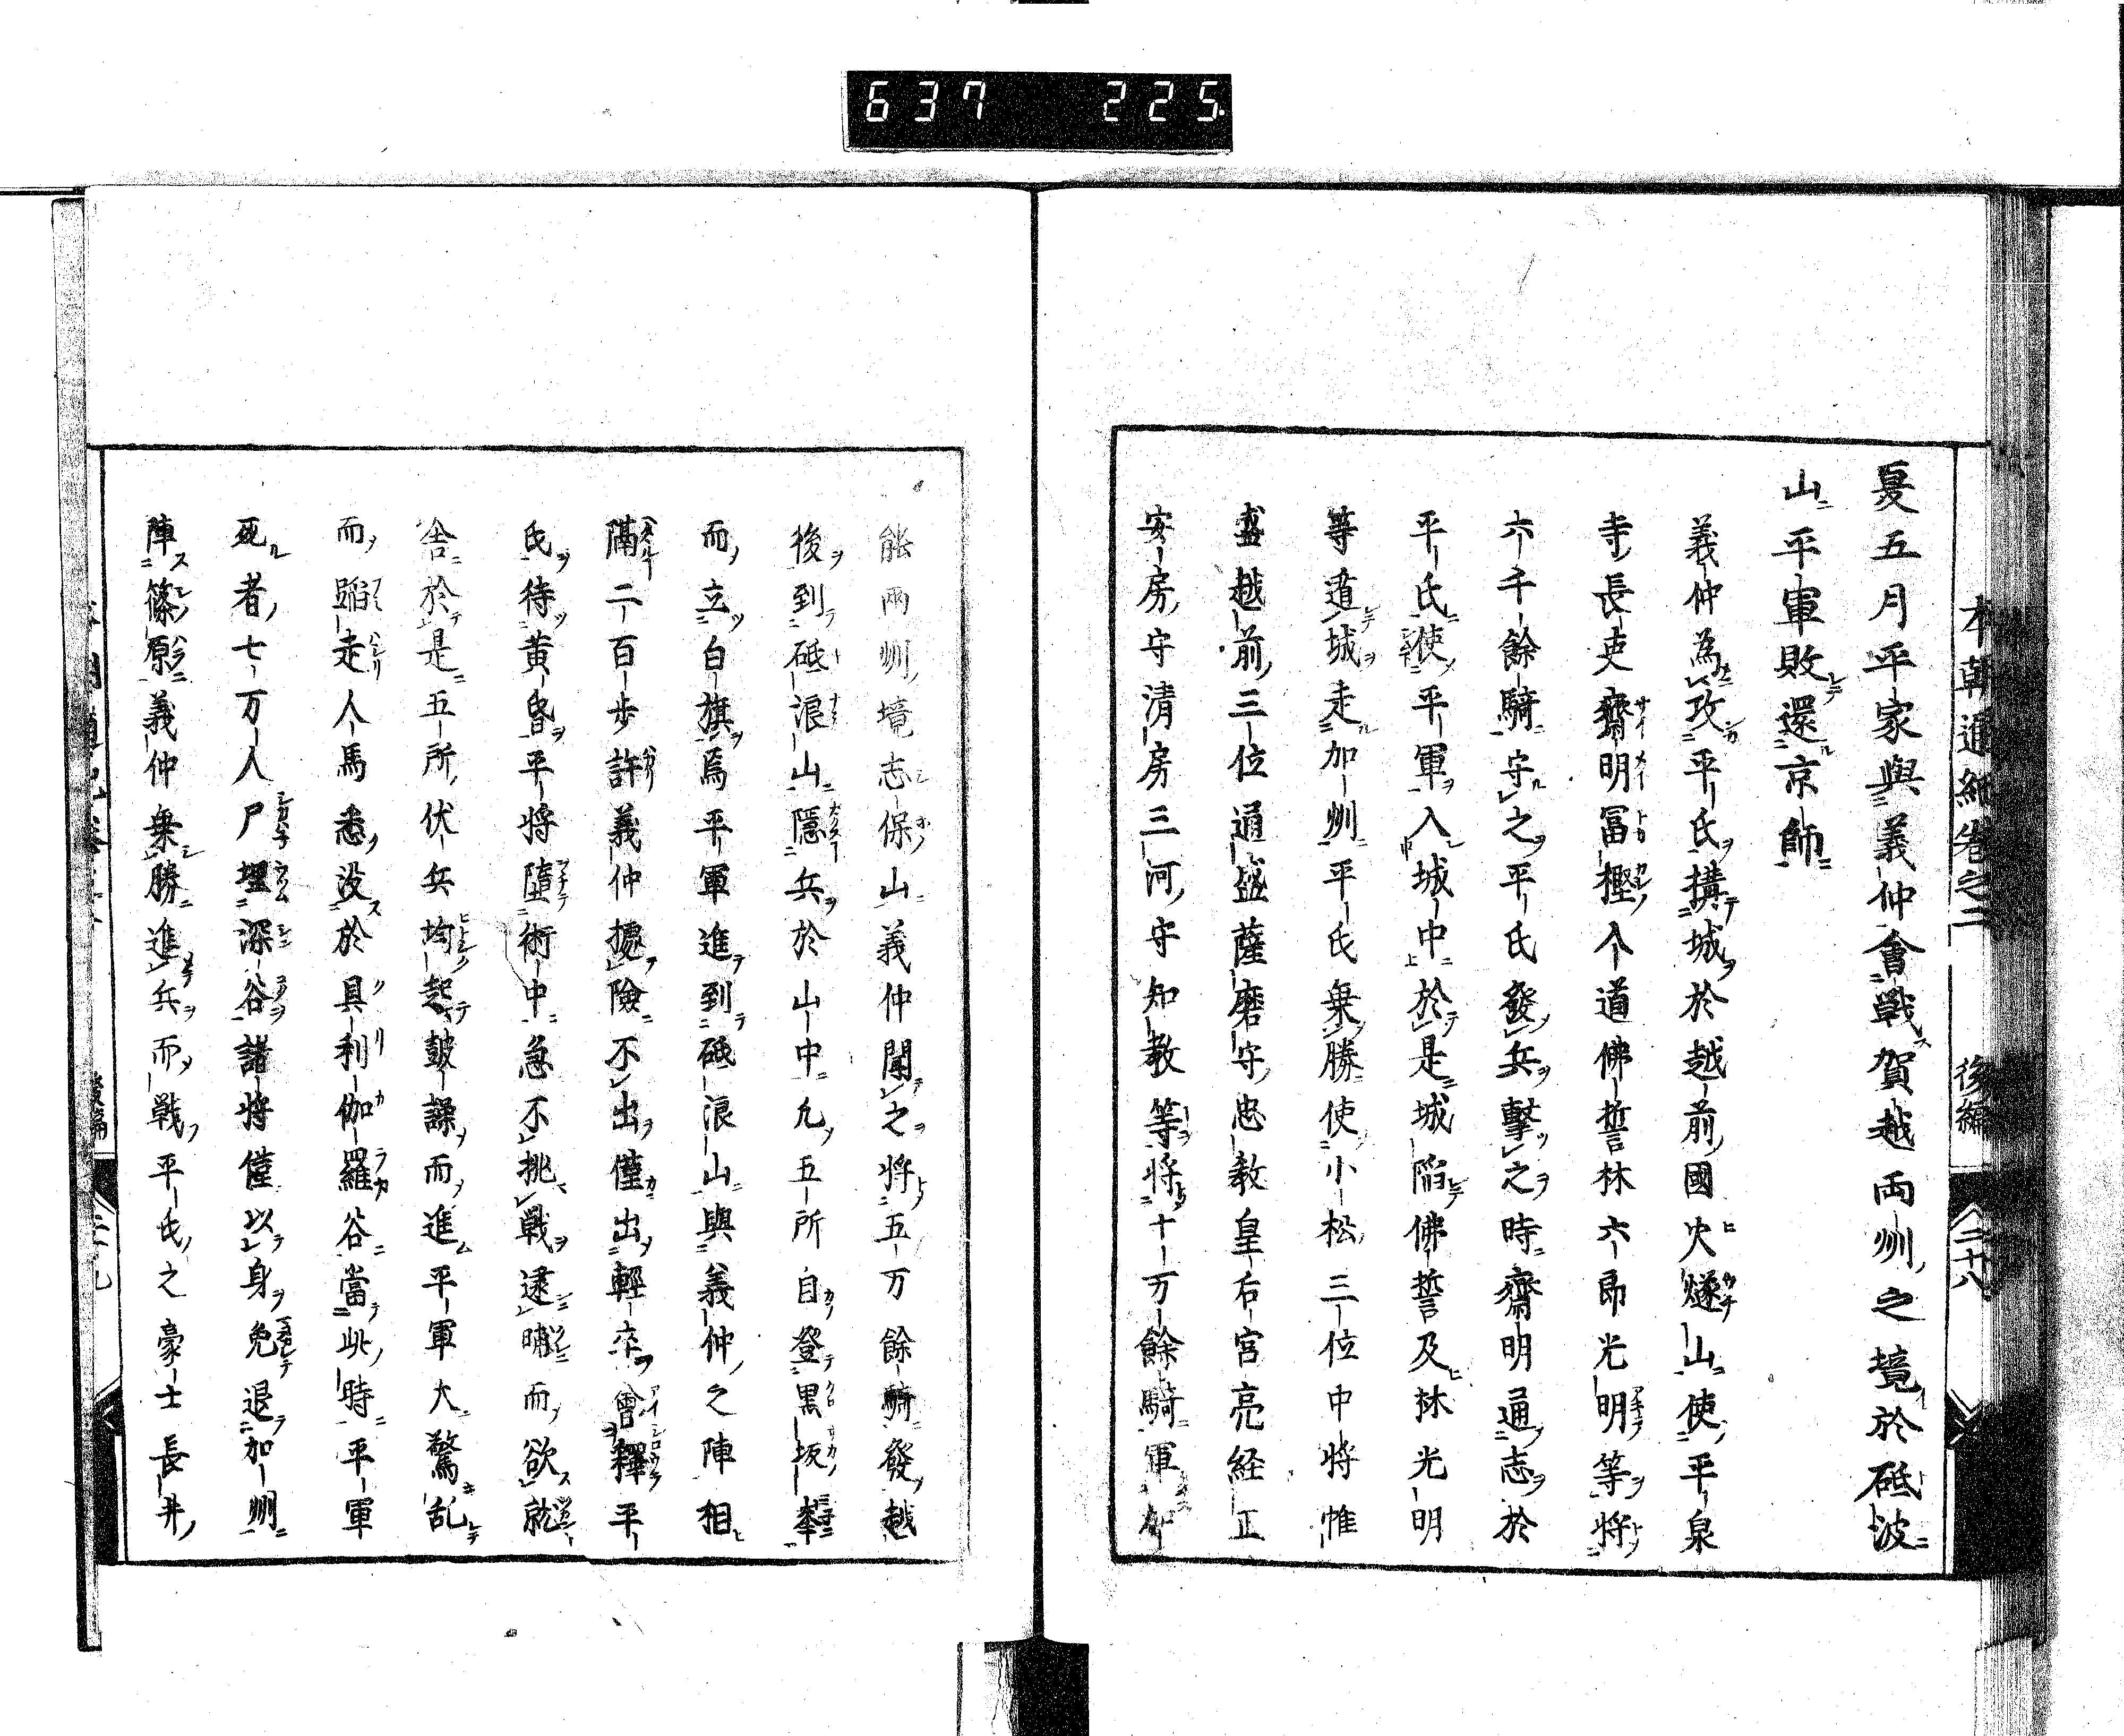 637 225
本朝通紀卷之二 後編 二十八
夏五月平家與義仲會戰賀越両州之境於砥波
山平軍敗還京師
義仲為攻平氏搆城於越前國火燧山使平泉
寺長吏齋明冨樫入道佛誓林六郎光明等将
六千餘騎守之平氏發兵擊之時齋明通志於
平氏使平軍入城中於是城陥佛誓及林光明
等遁城走加州平氏乗勝使小松三位中将惟
盛越前三位通盛薩磨守忠教皇后宮亮経正
安房守清房三河守知教等将十万餘騎軍加
能兩州境志保山義仲聞之将五万餘騎發越
後到砥浪山隱兵於山中凢五所自登黒坂峯
而立白旗焉平軍進到砥浪山與義仲之陣相
隔二百歩許義仲據險不出僅出輕卒會釋平
氏待黄昏平将墮術中急不挑戰逮晡而欲就
舎於是五所伏兵均起皷譟而進平軍大驚乱
而蹈走人馬悉没於具利伽羅谷當此時平軍
死者七万人尸埋深谷諸将僅以身免退加州
陣篠原義仲乗勝進兵而戦平氏之豪士長井